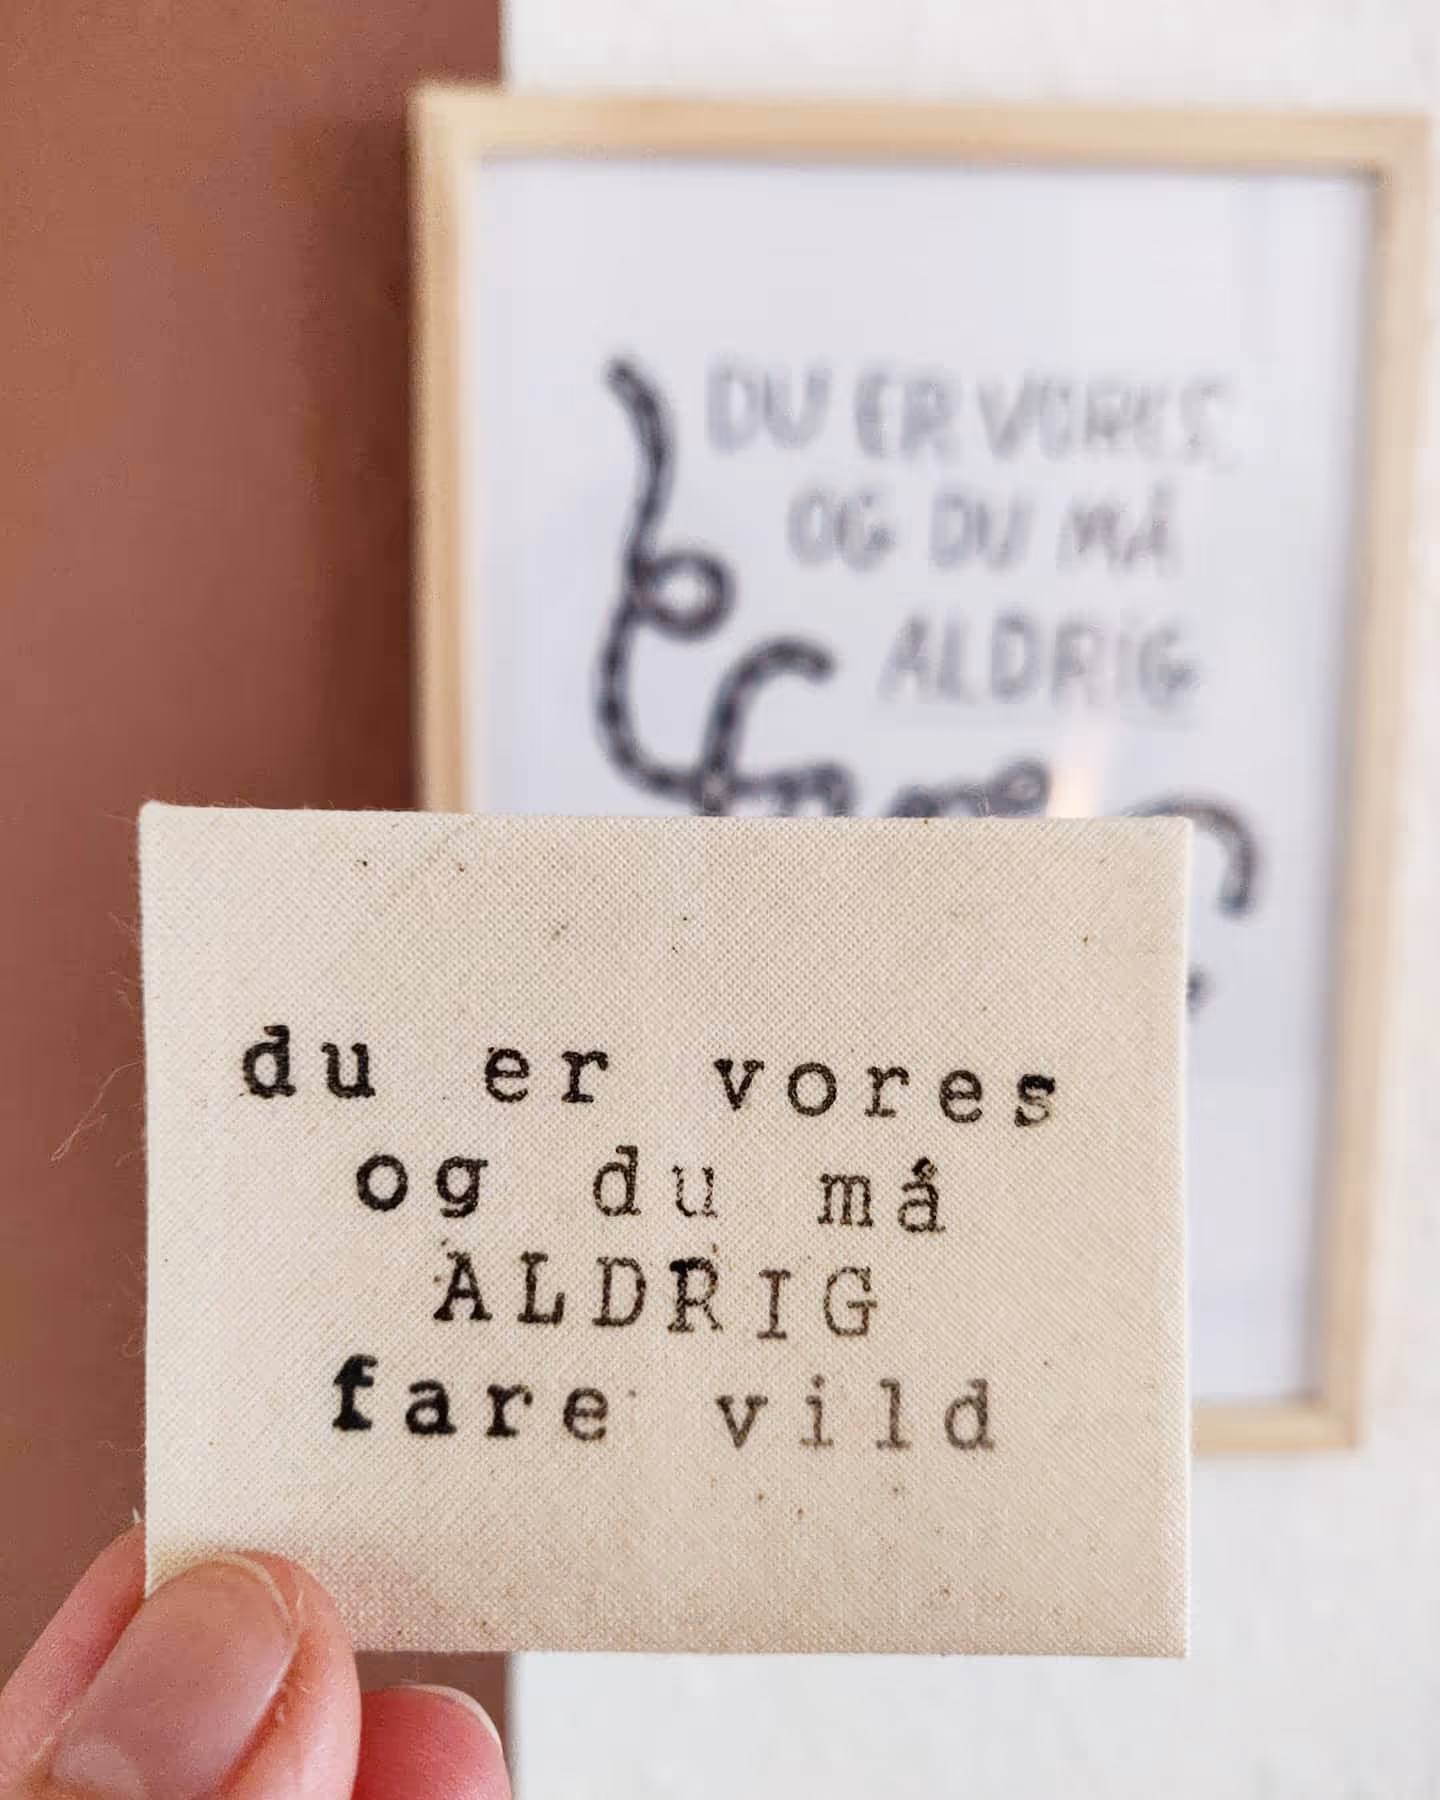 DU ER VORES,
OG DU MÅ
ALDRIG
du er vores
og du må
ALDRIG
fare vild